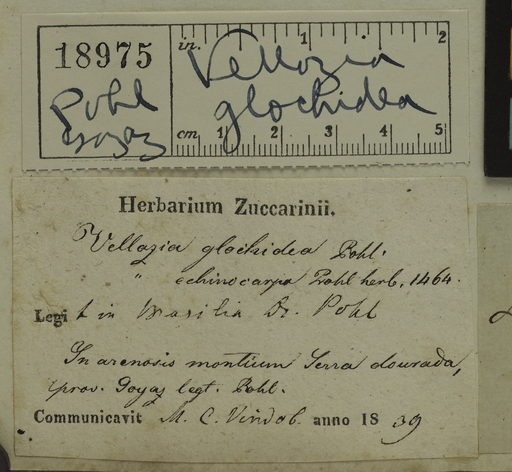 18975
Pohl
Goyaz
in. 1 2
Vellozia
glochidea
cm 1 2 3 4 5
Herbarium Zuccarinii.
Vellozia glochidea Pohl.
" echinocarpa Pohl herb. 1464.
Legit in Brasilia Dr. Pohl
In arenosis montium Serra dourada,
prov. Goyaz legt. Pohl.
Communicavit M. C. Vindob. anno 1839